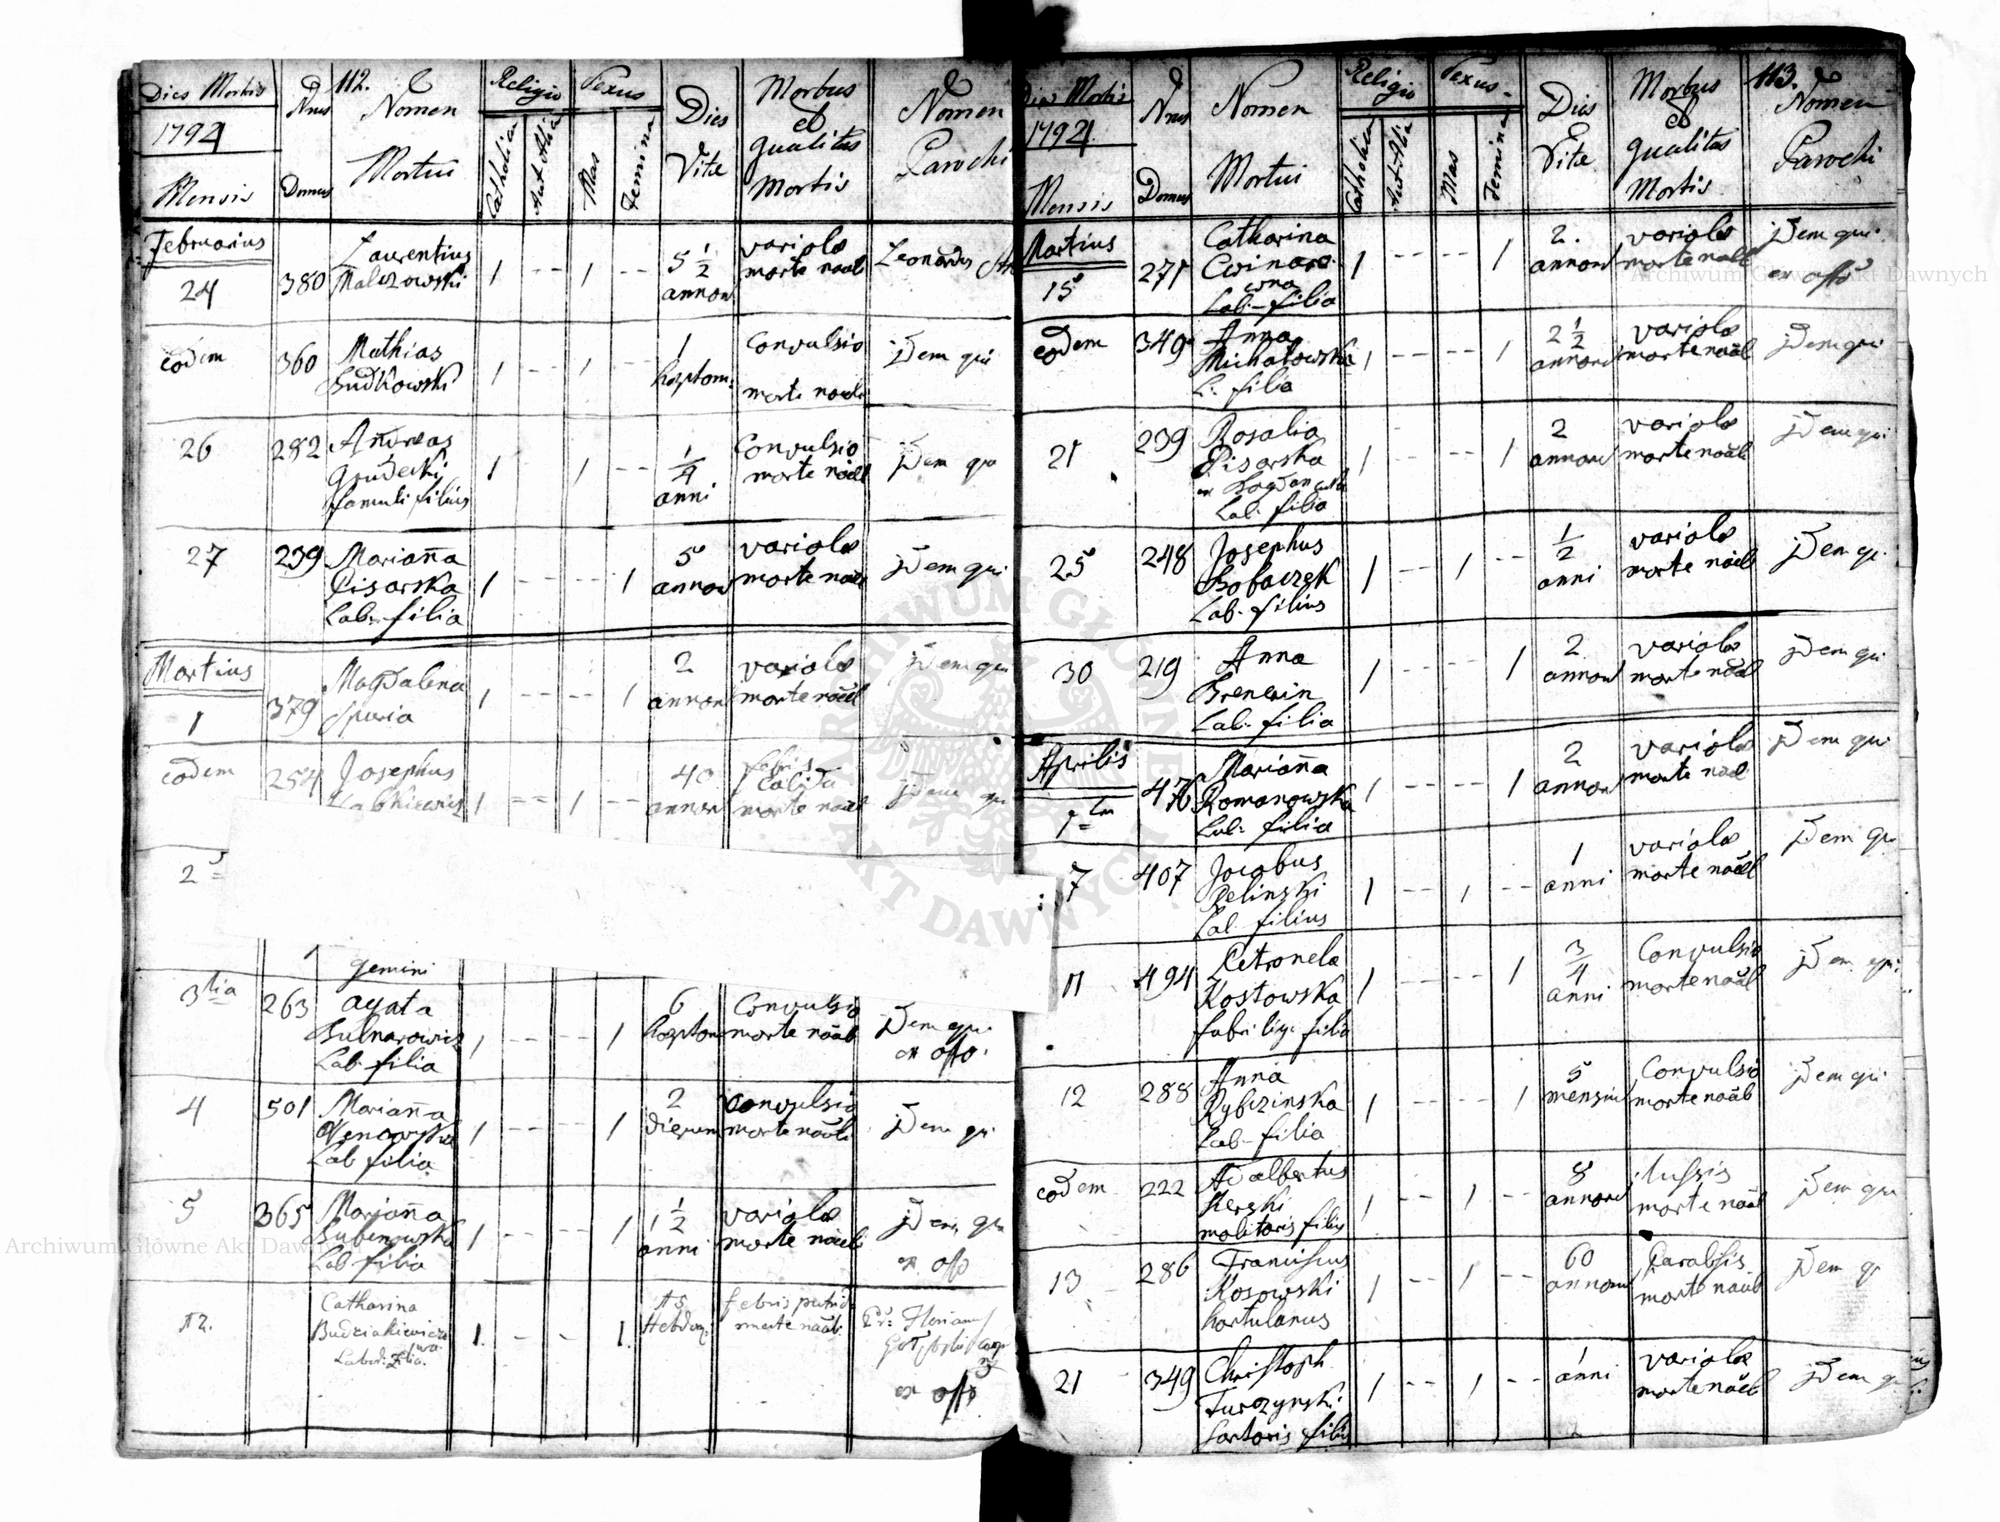 Dies Mortis
1794
Mensis
Nrus
Domus
112.
Nomen
Mortui
Religio
Catholica
Aut Alia
Sexus
Mas
Femina
Dies
Vitæ
Morbus
et
qualitas
Mortis
Nomen
Parochi
Februarius
24
380
Laurentius
Malczowski
1 -- 1 --
5 1/2
annor
variolæ
morte naāli
Leonardus
eodem
360
Mathias
Budkowski
1 -- 1 --
1
heptom:
Convulsio
morte naāli
Jdem qui
26
282
Andreas
Grudecki
famuli filius
1 1 --
1/4
anni
Convulsio
morte naāli
Jdem qui
27
239
Mariaña
Pisarska
Lab: filia
1 -- -- 1
5
annor
variolæ
morte naāli
Jdem qui
Martius
1
379
Magdalena
Spuria
1 -- -- 1
2
annor
variolæ
morte naāli
Jdem qui
eodem
254
Josephus
1 -- 1 --
40
annor
febris
Calida
morte naāli
Jdem qui
2
gemini
3tia
263
Agata
Lab. filia
1 -- -- 1
6
heptom
Convulsio
morte naāli
Jdem qui
ex offo.
4
501
Mariaña
Lab filia
1 -- -- 1
2
dierum
Convulsio
morte naāli
Jdem qui
5
365
Mariaña
Bubenowska
Lab filia
1 -- 1
1 1/2
anni
variolæ
morte naāli
Jdem qui
ex offo
12.
Catharina
Budziakiewiczo
wna
Labor: filia.
1. - - 1.
15
Hebdom:
febris putrida
morte naāli
ex offo
Dies Mortis
1794
Mensis
Nrus
Domus
Nomen
Mortui
Religio
Catholica
Aut Alia
Sexus
Mas
Femina
Dies
Vitæ
Morbus
et
qualitas
Mortis
113.
Nomen
Parochi
Martius
15
271
Catharina
wna
Lab: filia
1 -- -- 1
2.
annor
variolæ
morte naāli
Jdem qui
ex offo
eodem
349
Anna
Michałowska
L: filia
1 -- -- 1
2 1/2
annor
variolæ
morte naāli
Jdem qui
21
239
Rosalia
Pisarska
Lab: filia
1 -- -- 1
2
annor
variolæ
morte naāli
Jdem qui
25
248
Josephus
Lab. filius
1 -- 1 --
1/2
anni
variolæ
morte naāli
Jdem qui
30
219
Anna
Brenerin
Lab: filia
1 -- -- 1
2
annor
variolæ
morte naāli
Jdem qui
Aprilis
1ma
476
Mariaña
Romanowska
Lab: filia
1 -- -- 1
2
annor
variolæ
morte naāli
Jdem qui
7
407
Jacobus
Zelinski
Lab. filius
1 -- 1 --
1
anni
variolæ
morte naāli
Jdem qui
11
494
Petronela
Kostowska
fabri lig: filia
1 -- -- 1
3/4
anni
Convulsio
morte naāli
Jdem qui
12
288
Anna
Rybczinska
Lab. filia
1 -- -- 1
5
mensiu
Convulsio
morte naāli
Jdem qui
eodem
222
Adalbertus
Kerski
molitoris filius
1 -- 1 --
8
annor
tussis
morte naāli
Jdem qui
13
286
Franciscus
Kosowski
hortulanus
1 -- 1 --
60
annor
Paralisis
morte naāli
Jdem qui
21
349
Christoph
Turczynski
Sartoris filius
1 -- 1 --
1
anni
variolæ
morte naāli
Jdem qui
Archiwum Główne Akt Dawnych
Archiwum Główne Akt Dawnych
ARCHIWUM GŁÓWNE
AKT DAWNYCH